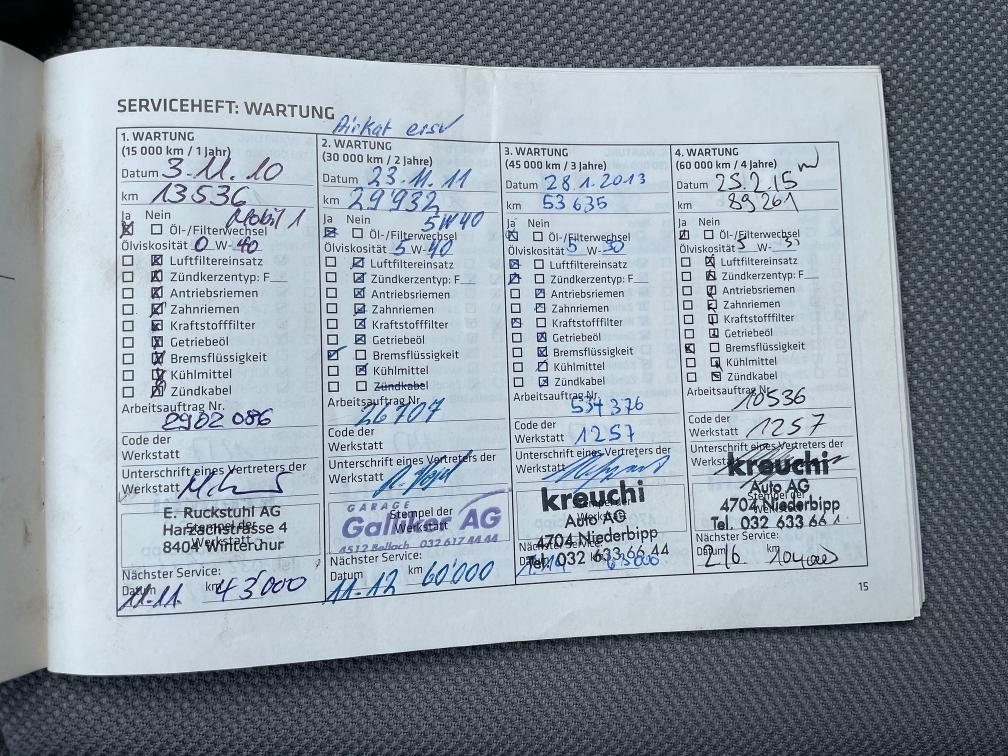 SERVICEHEFT: WARTUNG
1. WARTUNG
(15 000 km / 1 Jahr)
Datum 3.11.10
km 13536
Ja Nein Mobil 1
Öl-/Filterwechsel
Ölviskosität 0 W-40
Luftfiltereinsatz
Zündkerzentyp: F
Antriebsriemen
Zahnriemen
Kraftstofffilter
Getriebeöl
Bremsflüssigkeit
Kühlmittel
Zündkabel
Arbeitsauftrag Nr.
2902 086
Code der
Werkstatt
Unterschrift eines Vertreters der
Werkstatt
E. Ruckstuhl AG
Harzachstrasse 4
8404 Winterthur
Stempel der
Werkstatt
Nächster Service:
Datum km
11.11 43'000
2. WARTUNG
(30 000 km / 2 Jahre)
Datum 23.11.11
km 29932
Ja Nein 5W40
Öl-/Filterwechsel
Ölviskosität 5 W-40
Luftfiltereinsatz
Zündkerzentyp: F
Antriebsriemen
Zahnriemen
Kraftstofffilter
Getriebeöl
Bremsflüssigkeit
Kühlmittel
Zündkabel
Arbeitsauftrag Nr.
26707
Code der
Werkstatt
Unterschrift eines Vertreters der
Werkstatt
GARAGE
AG
4512 Bellach 032 617 44 44
Stempel der
Werkstatt
Nächster Service:
Datum km
11.12 60'000
3. WARTUNG
(45 000 km / 3 Jahre)
Datum 28.1.2013
km 53635
Ja Nein
Öl-/Filterwechsel
Ölviskosität 5 W-30
Luftfiltereinsatz
Zündkerzentyp: F
Antriebsriemen
Zahnriemen
Kraftstofffilter
Getriebeöl
Bremsflüssigkeit
Kühlmittel
Zündkabel
Arbeitsauftrag Nr.
534 376
Code der
Werkstatt 1257
Unterschrift eines Vertreters der
Werkstatt
kreuchi
Auto AG
4704 Niederbipp
Tel. 032 633 66 44
Stempel der
Werkstatt
Nächster Service:
km
4. WARTUNG
(60 000 km / 4 Jahre)
Datum 25.2.15
km 89261
Ja Nein
Öl-/Filterwechsel
Ölviskosität 5 W-
Luftfiltereinsatz
Zündkerzentyp: F
Antriebsriemen
Zahnriemen
Kraftstofffilter
Getriebeöl
Bremsflüssigkeit
Kühlmittel
Zündkabel
Arbeitsauftrag Nr.
10536
Code der
Werkstatt 1257
Unterschrift eines Vertreters der
Werkstatt
kreuchi
Auto AG
4704 Niederbipp
Tel. 032 633 66
Stempel der
Werkstatt
Nächster Service:
Datum km
15